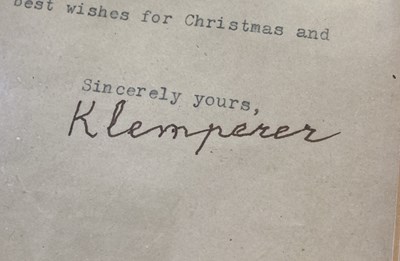 best wishes for Christmas and
Sincerely yours,
Klemperer